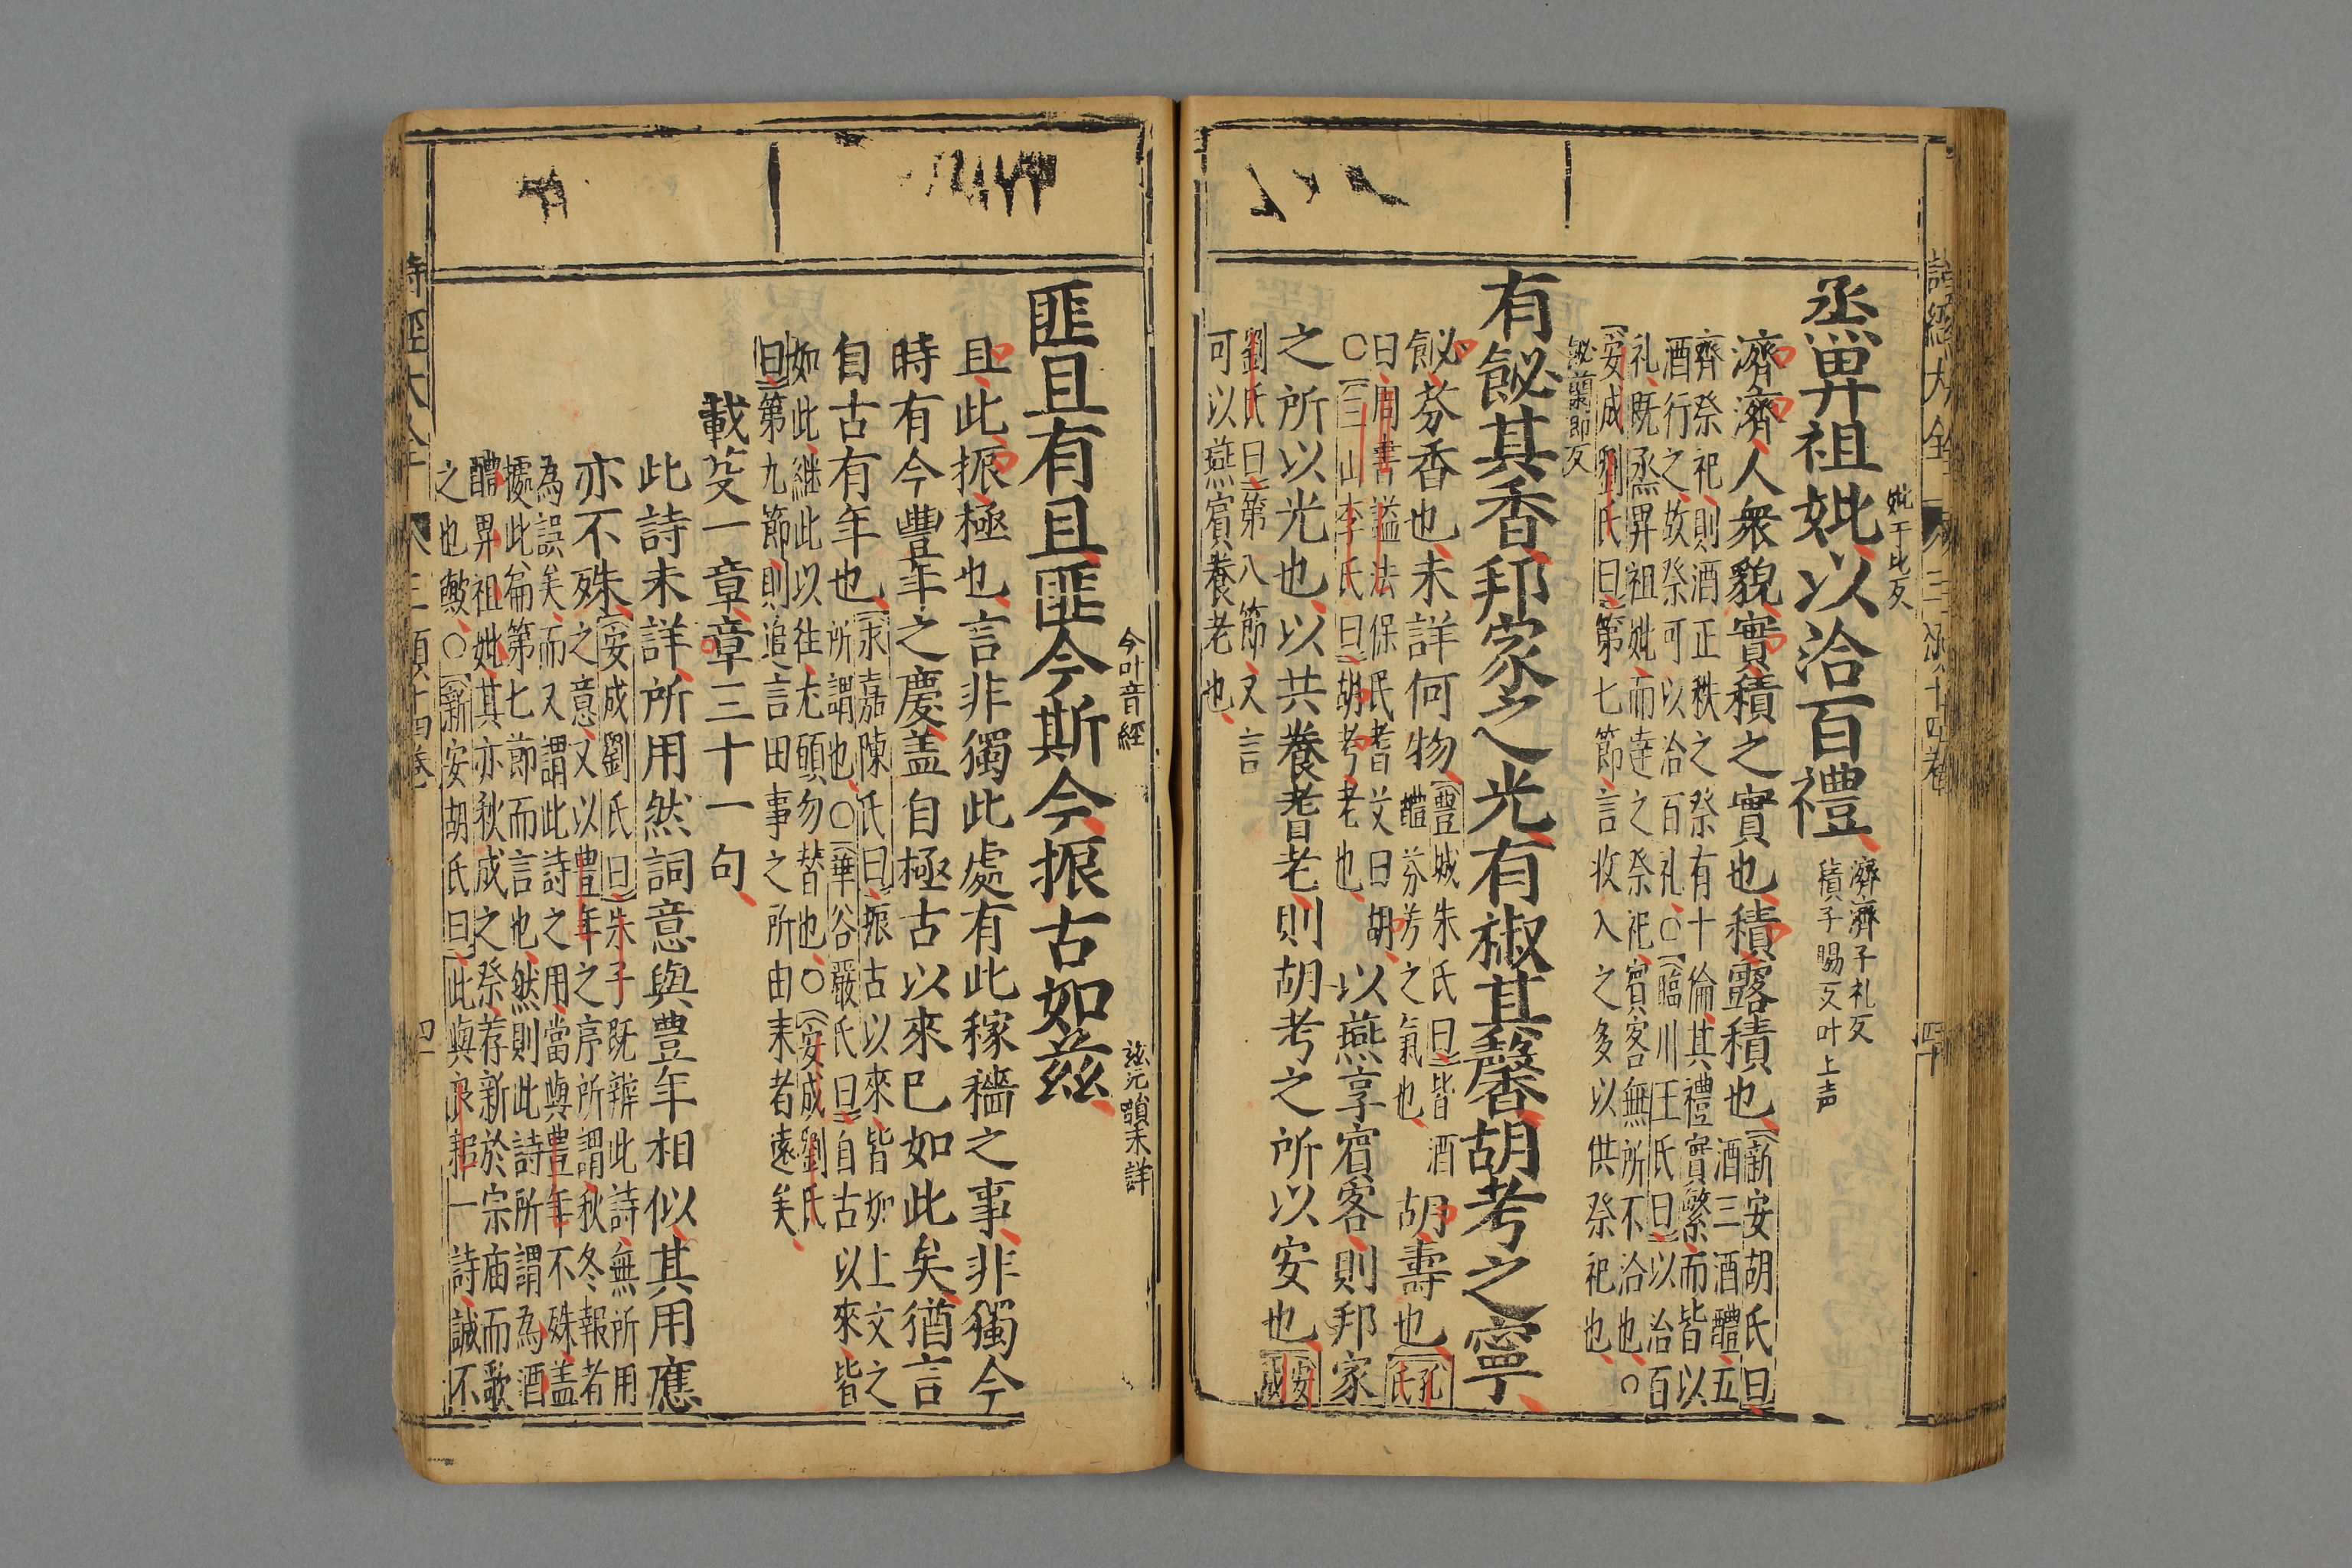 詩經大全
三頌十四卷
四十
烝畀祖妣以洽百禮
妣于比反
濟濟子礼反
積子賜反叶上声
濟濟人衆貌實積之實也積露積也
新安胡氏曰
酒三酒醴五
齊祭祀則酒正秩之祭有十倫其禮實繁而皆以
酒行之故祭可以洽百礼○臨川王氏曰以洽百
礼既烝畀祖妣而逹之祭祀賓客無所不洽也○
安成劉氏曰第七節言收入之多以供祭祀也
飶蒲即反
有飶其香邦家之光有椒其馨胡考之寧
飶芬香也未詳何物
豐城朱氏曰皆酒
醴芬芳之氣也
胡壽也
孔氏
曰周書謚法保民耆艾曰胡
○三山李氏曰胡考老也
以燕享賓客則邦家
之所以光也以共養耆老則胡考之所以安也
安成
劉氏曰第八節又言
可以燕賓養老也
匪且有且匪今斯今振古如茲
今叶音經
茲元韻未詳
且此振極也言非獨此處有此稼穡之事非獨今
時有今豐年之慶盖自極古以來已如此矣猶言
自古有年也
永嘉陳氏曰振古以來皆如上文之
所謂也○華谷嚴氏曰自古以來皆
如此継此以往尤頭勿替也○安成劉氏
曰第九節則追言田事之所由来者遠矣
載芟一章章三十一句
此詩未詳所用然詞意與豊年相似其用應
亦不殊
安成劉氏曰朱子既辨此詩無所用
之意又以豊年之序所謂秋冬報者
為誤矣而又謂此詩之用當與豊年不殊盖
據此篇第七節而言也然則此詩所謂為酒
醴畀祖妣其亦秋成之祭荐新於宗庙而歌
之也歟○新安胡氏曰此與良耜一詩誠不
詩經大全
三頌十四卷
四一